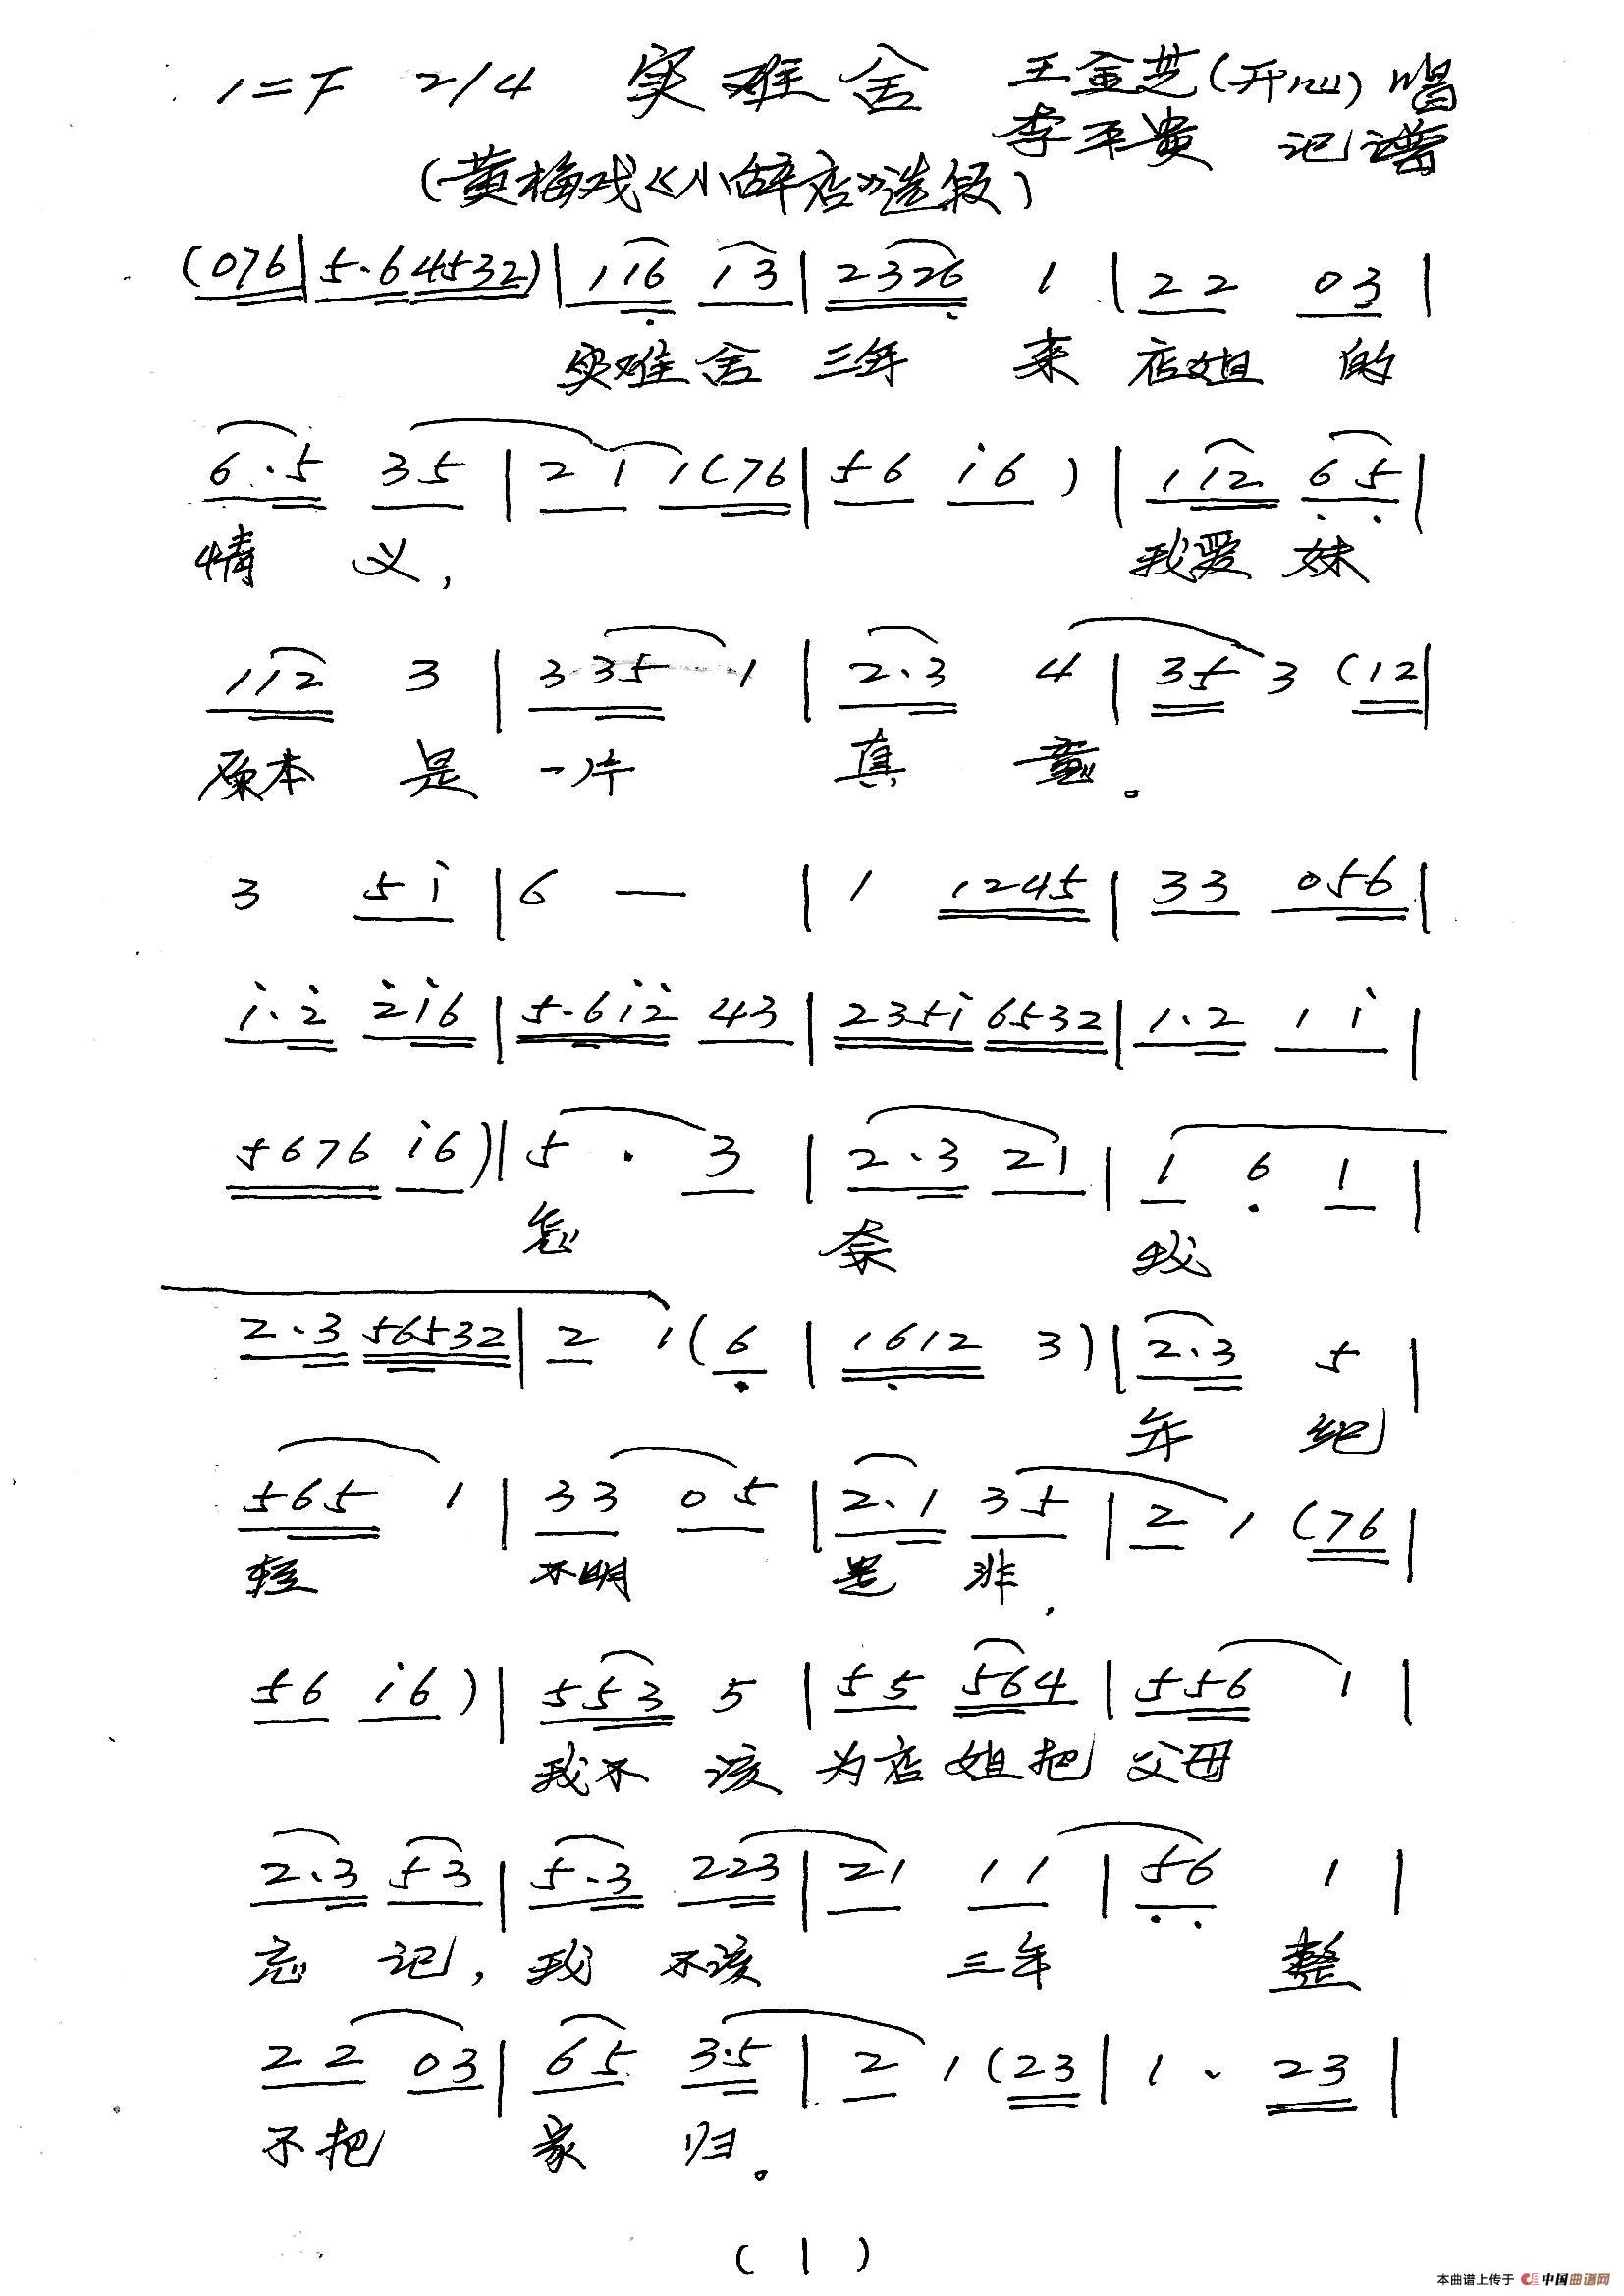 1=F 2/4 实难舍 王金芝(开心)唱
李平贵 记谱
(黄梅戏《小辞店》选段)
(076|5.64532)|116 13|2326 1|22 03|
实难舍 三年 来 店姐 的
6.5 35|21 1(76|56 i6)|112 65|
情 义, 我爱 妹
112 3|335 1|2.3 4|35 3(12|
原本 是 一片 真 意。
3 5i|6 —|1 1245|33 056|
i.2̇ 2̇i6|5.6i2̇ 43|235i 6532|1.2 1i|
5676 i6)|5. 3|2.3 21|1 6 1|
怎 奈 我
2.3 56532|2 1(6|1612 3)|2.3 5|
年 纪
565 1|33 05|2.1 35|2 1(76|
轻 不明 是 非,
56 i6)|553 5|55 564|556 1|
我不 该 为店 姐把 父母
2.3 53|5.3 223|21 11|56 1|
忘 记, 我 不该 三年 整
22 03|65 3.5|2 1(23|1. 23|
不把 家 归。
(1)
本曲谱上传于 中国曲谱网